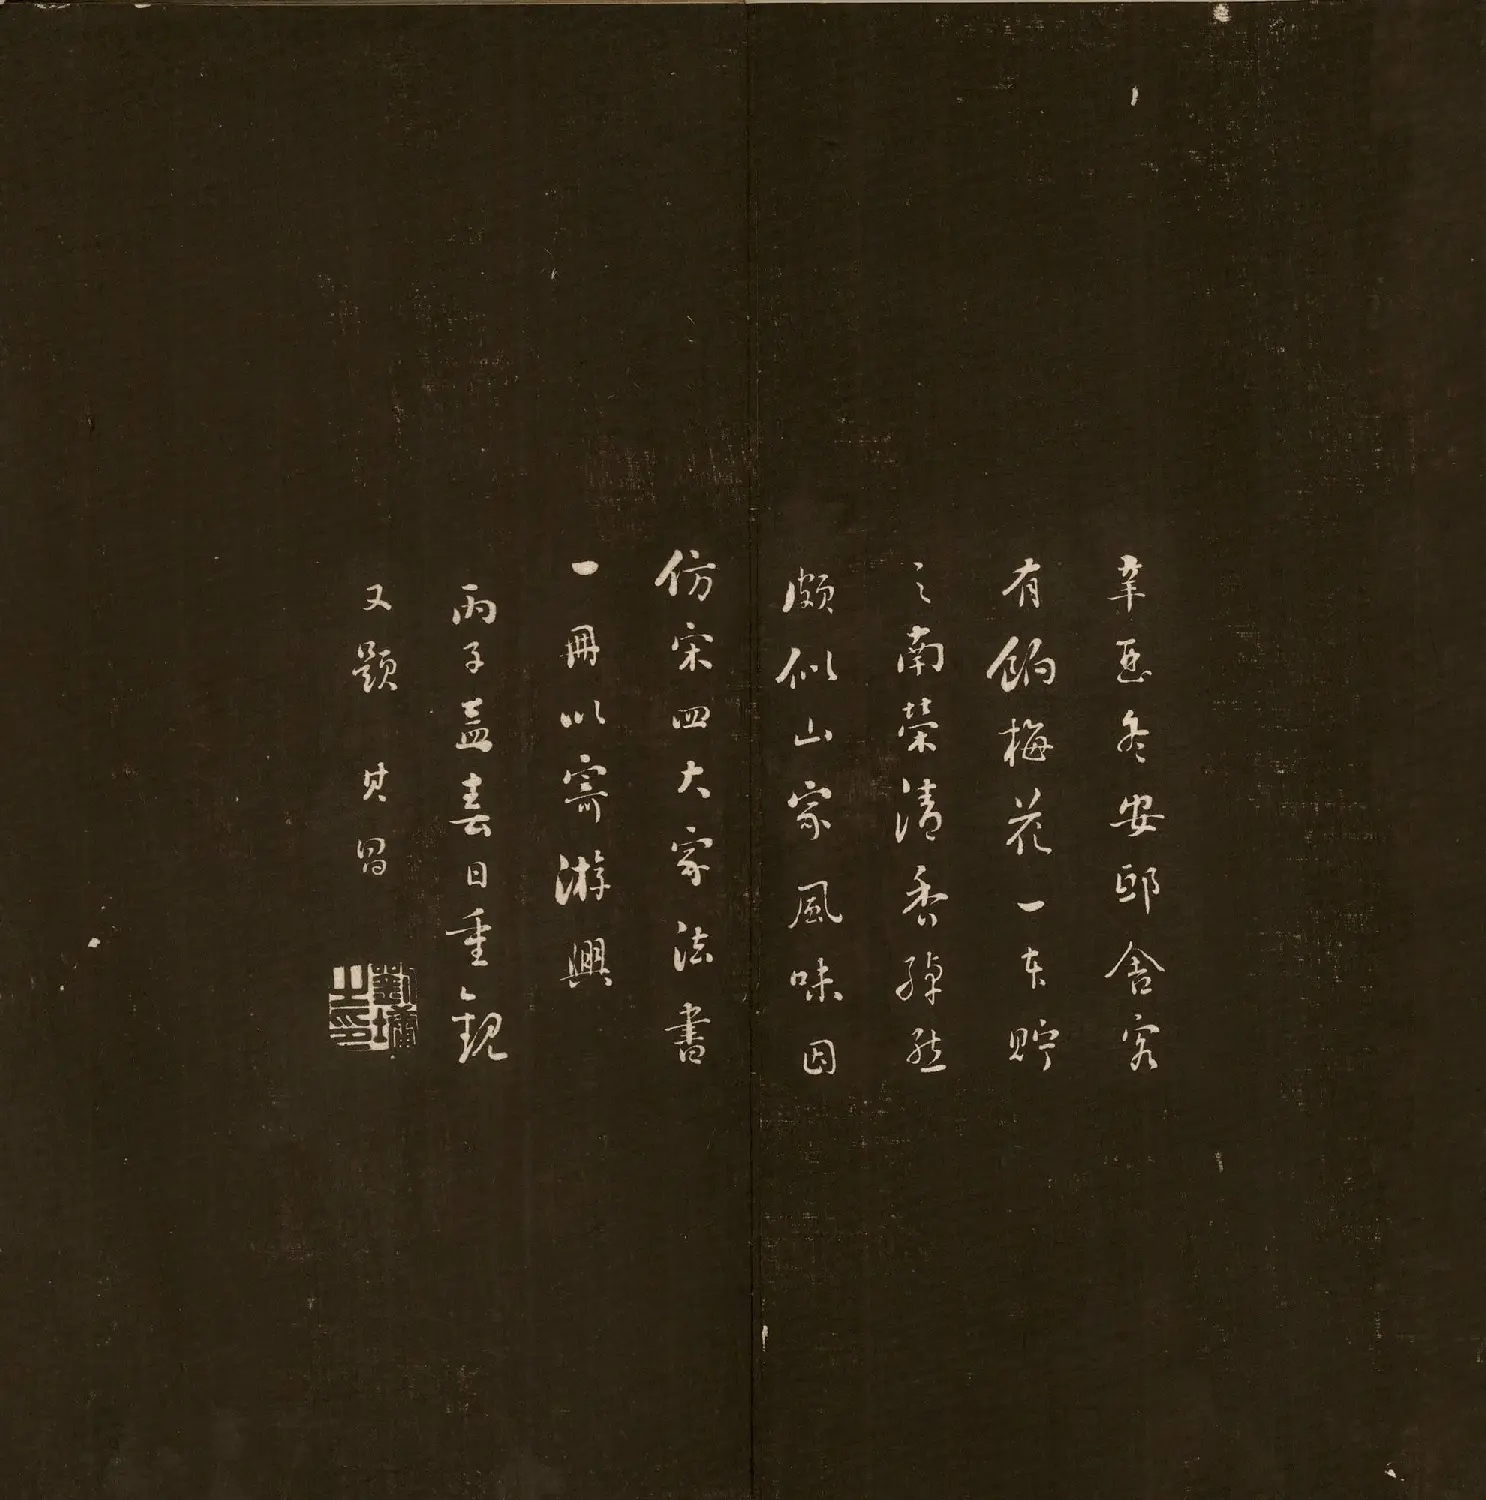 辛亥冬安邱舍客
有餉梅花一本貯
之南榮清香綽然
頗似山家風味因
仿宋四大家法書
一冊以寄游興
丙子孟春日重觀
又題 其昌
劉墉之印